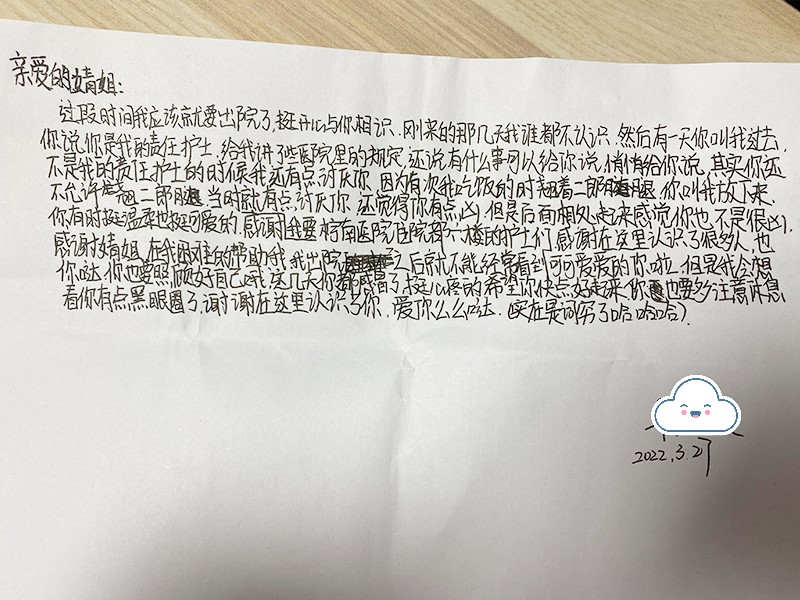 亲爱的婧姐：
过段时间我应该就要出院了,挺开心与你相识.刚来的那几天我谁都不认识.然后有一天你叫我过去,
你说你是我的责任护士,给我讲了些医院里的规定,还说有什么事可以给你说,悄悄给你说,其实你还
不是我的责任护士的时候,我还有点讨厌你,因为有次我吃饭的时翘着二郎腿,你叫我放下来,
不允许翘二郎腿,当时就有点讨厌你,还觉得你有点凶,但是后面相处起来感觉你也不是很凶,
你有时挺温柔也挺可爱的.感谢我要好南医院医院部六楼的护士们,感谢在这里认识了很多人,也
感谢婧姐,在我困难的帮助我,我出院之后就不能经常看到可可爱爱的你啦,但是我会想
你哒,你也要照顾好自己哦,这几天你都感冒了,挺心疼的希望你快点好起来,你也要多注意休息
看你有点黑眼圈了,谢谢在这里认识了你,爱你么么哒.(实在是词穷了哈哈哈)
2022.3.21